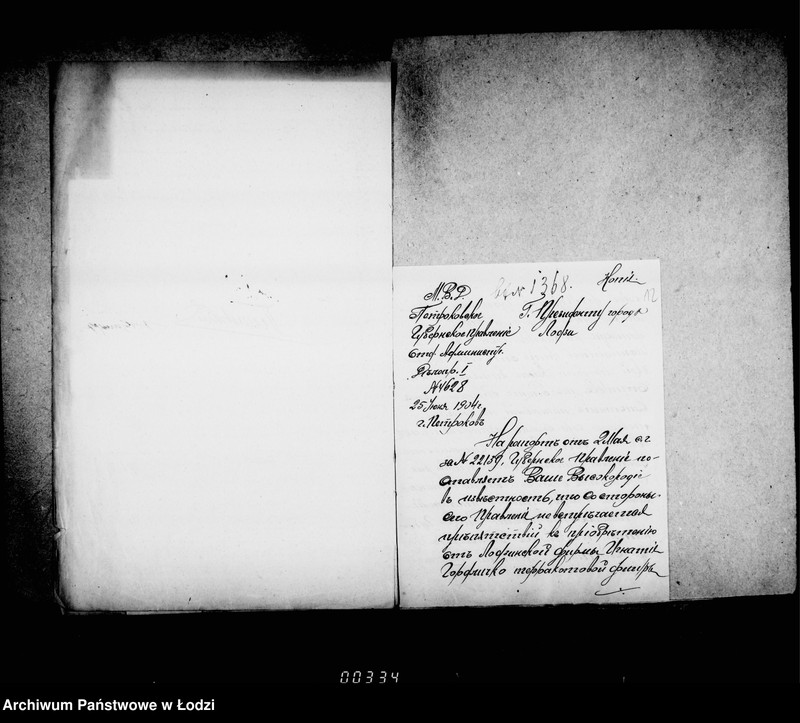 Копія.
1368.
12
М.В.Д.
Петроковское
Губернское Правленіе
Отд. Администр.
Дѣлопр. I
№ 4628
25 Іюня 1904 г.
г. Петроковъ
Г. Президенту города
Лодзи
На рапортъ отъ 2 Мая с. г.
за № 22159, Губернское Правленіе по-
ставляетъ Ваше Высокородіе
въ извѣстность, что со стороны
его Правленія не встрѣчается
препятствій къ пріобрѣтенію
отъ Лодзинской фирмы Игнатія
терракотовой
00334
Archiwum Państwowe w Łodzi